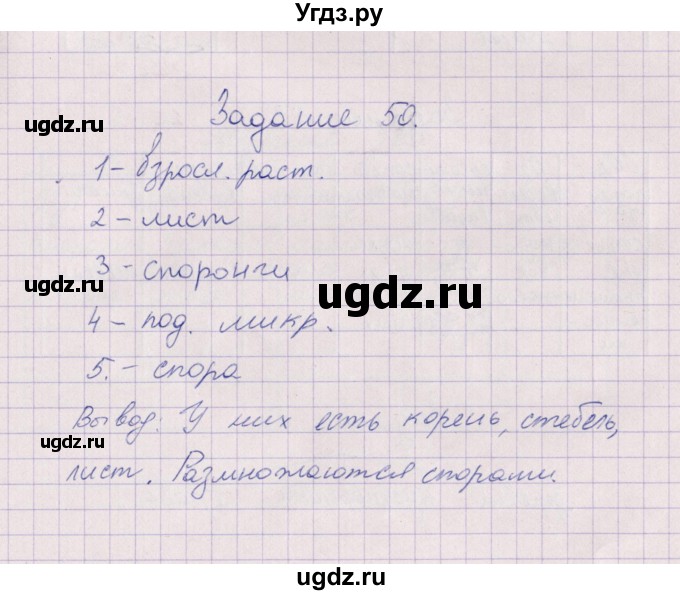 Угдз.ру
Задание 50.
ugdz.ru
1 - взросл. раст.
2 - лист
3 - споронги
ugdz.ru
ugdz.ru
4 - под. микр.
5. - спора
Вывод: У них есть корень, стебель,
ugdz.ru
лист. Размножаются спорами.
ugdz.ru